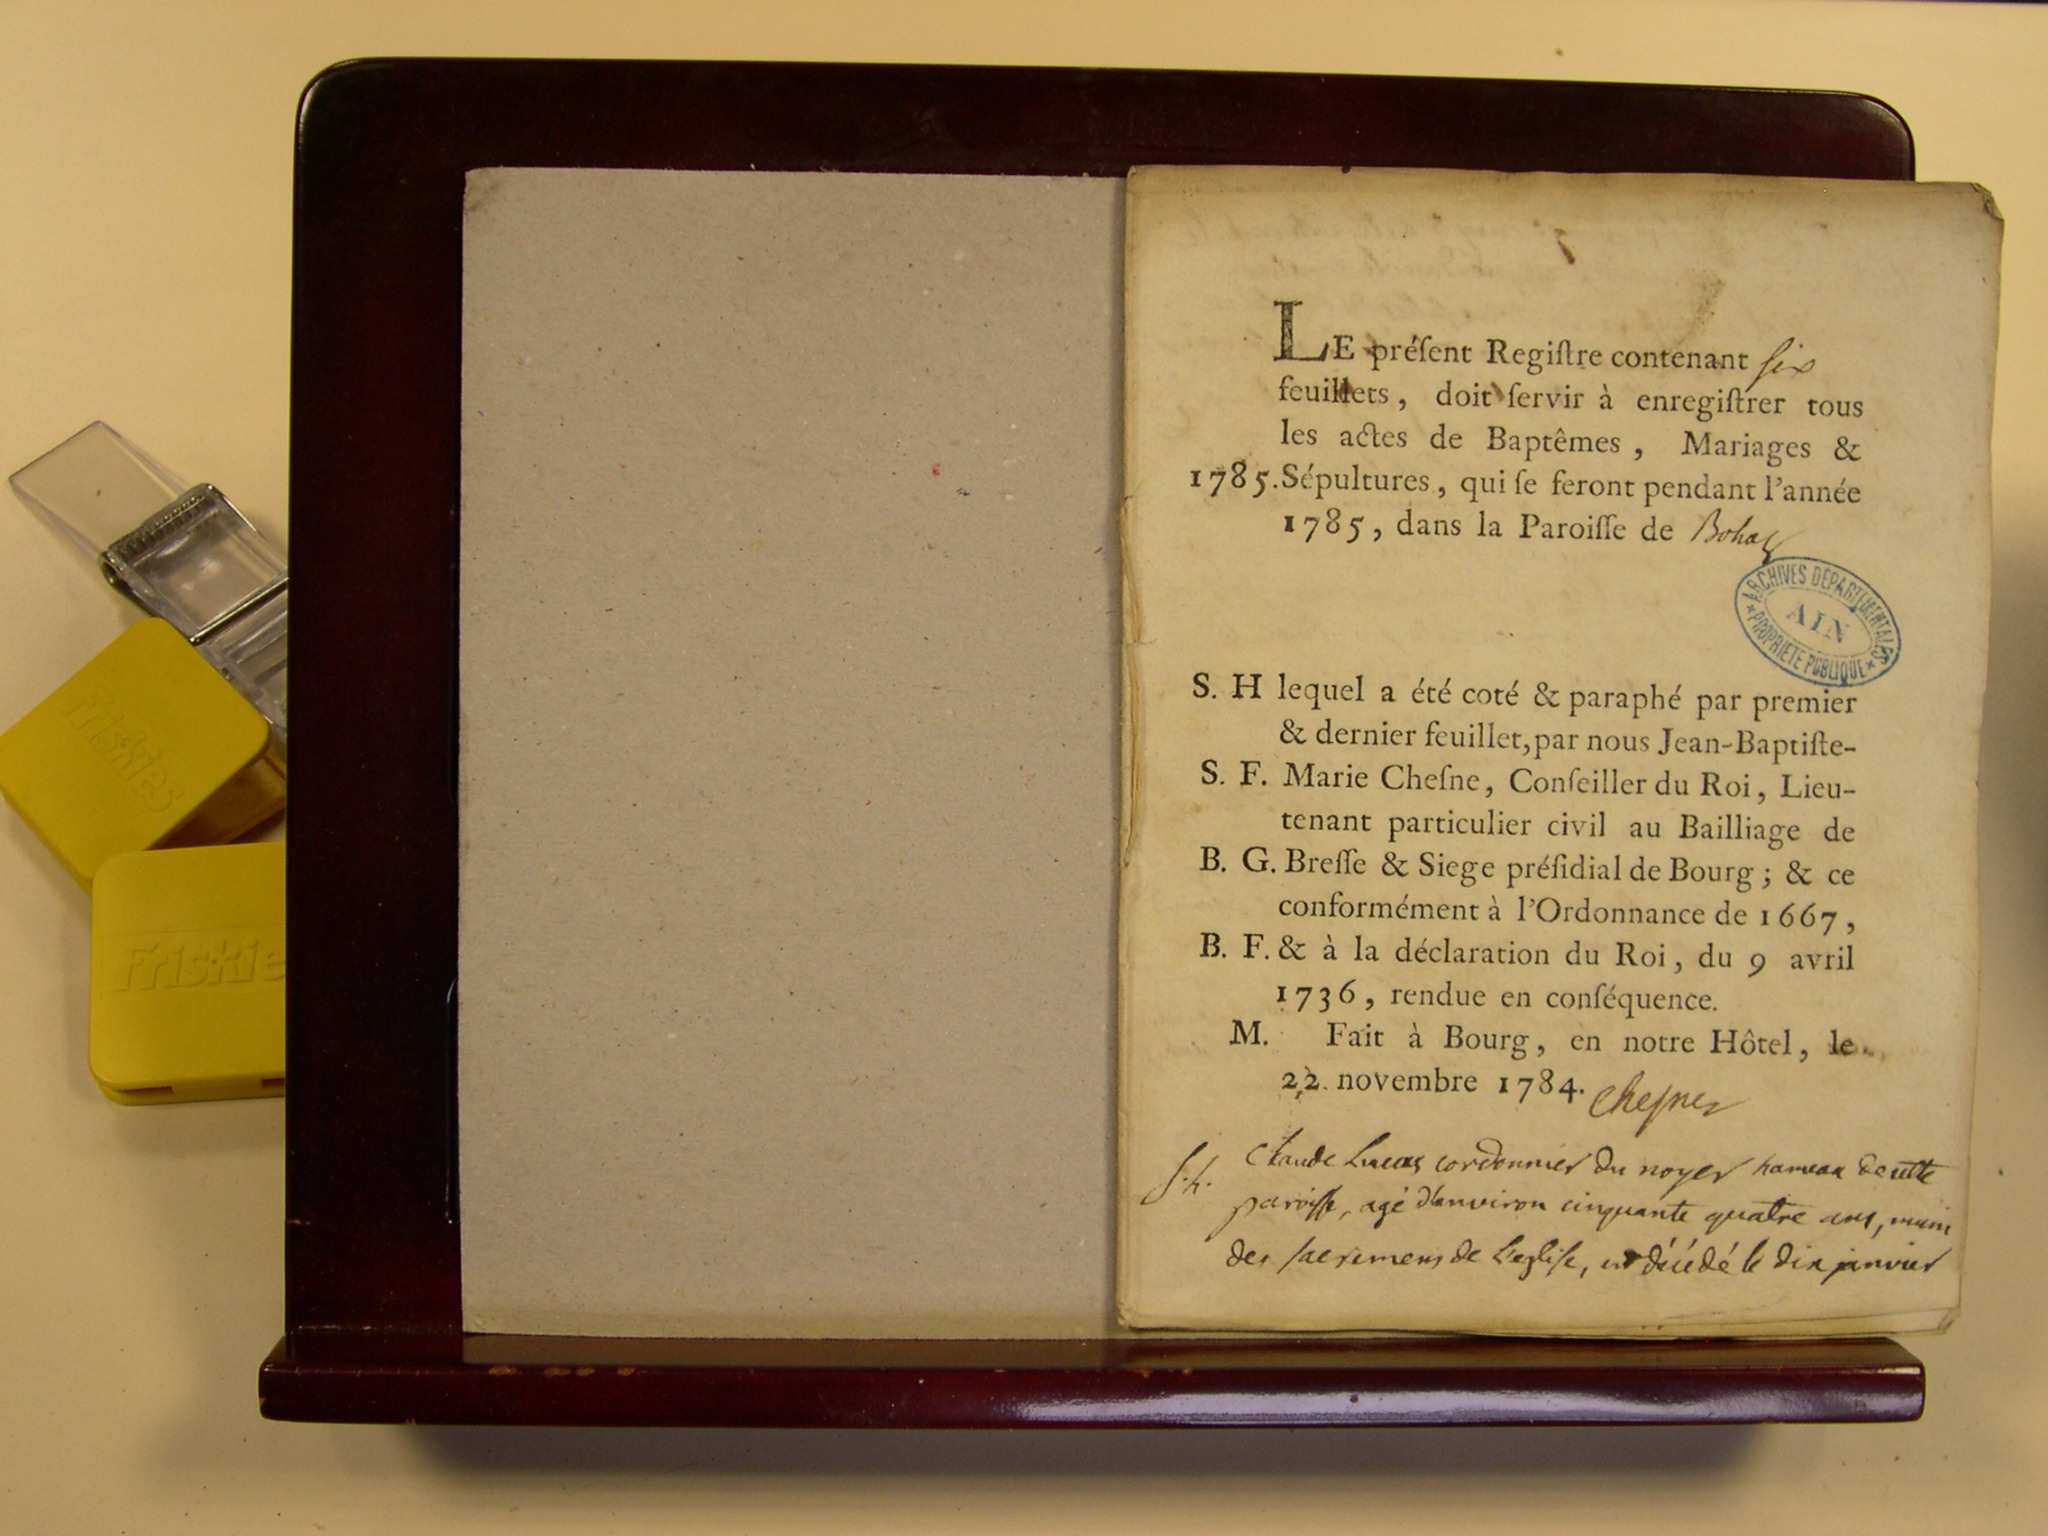 LE préſent Regiſtre contenant ſix
feuillets, doit ſervir à enregiſtrer tous
les actes de Baptêmes, Mariages &
1785. Sépultures, qui ſe feront pendant l'année
1785, dans la Paroiſſe de Bohas
ARCHIVES DEPARTEMENTALES
AIN
* PROPRIETE PUBLIQUE *
S. H lequel a été coté & paraphé par premier
& dernier feuillet, par nous Jean-Baptiſte-
S. F. Marie Cheſne, Conſeiller du Roi, Lieu-
tenant particulier civil au Bailliage de
B. G. Breſſe & Siege préſidial de Bourg ; & ce
conformément à l'Ordonnance de 1667,
B. F. & à la déclaration du Roi, du 9 avril
1736, rendue en conſéquence.
M. Fait à Bourg, en notre Hôtel, le
22 novembre 1784. Cheſne
S. h. Claude Lucas cordonnier du noyer hameau de cette
paroisse, agé d'environ cinquante quatre ans, muni
des sacremens de l'eglise, est décédé le dix janvier
Friskies
Friskie